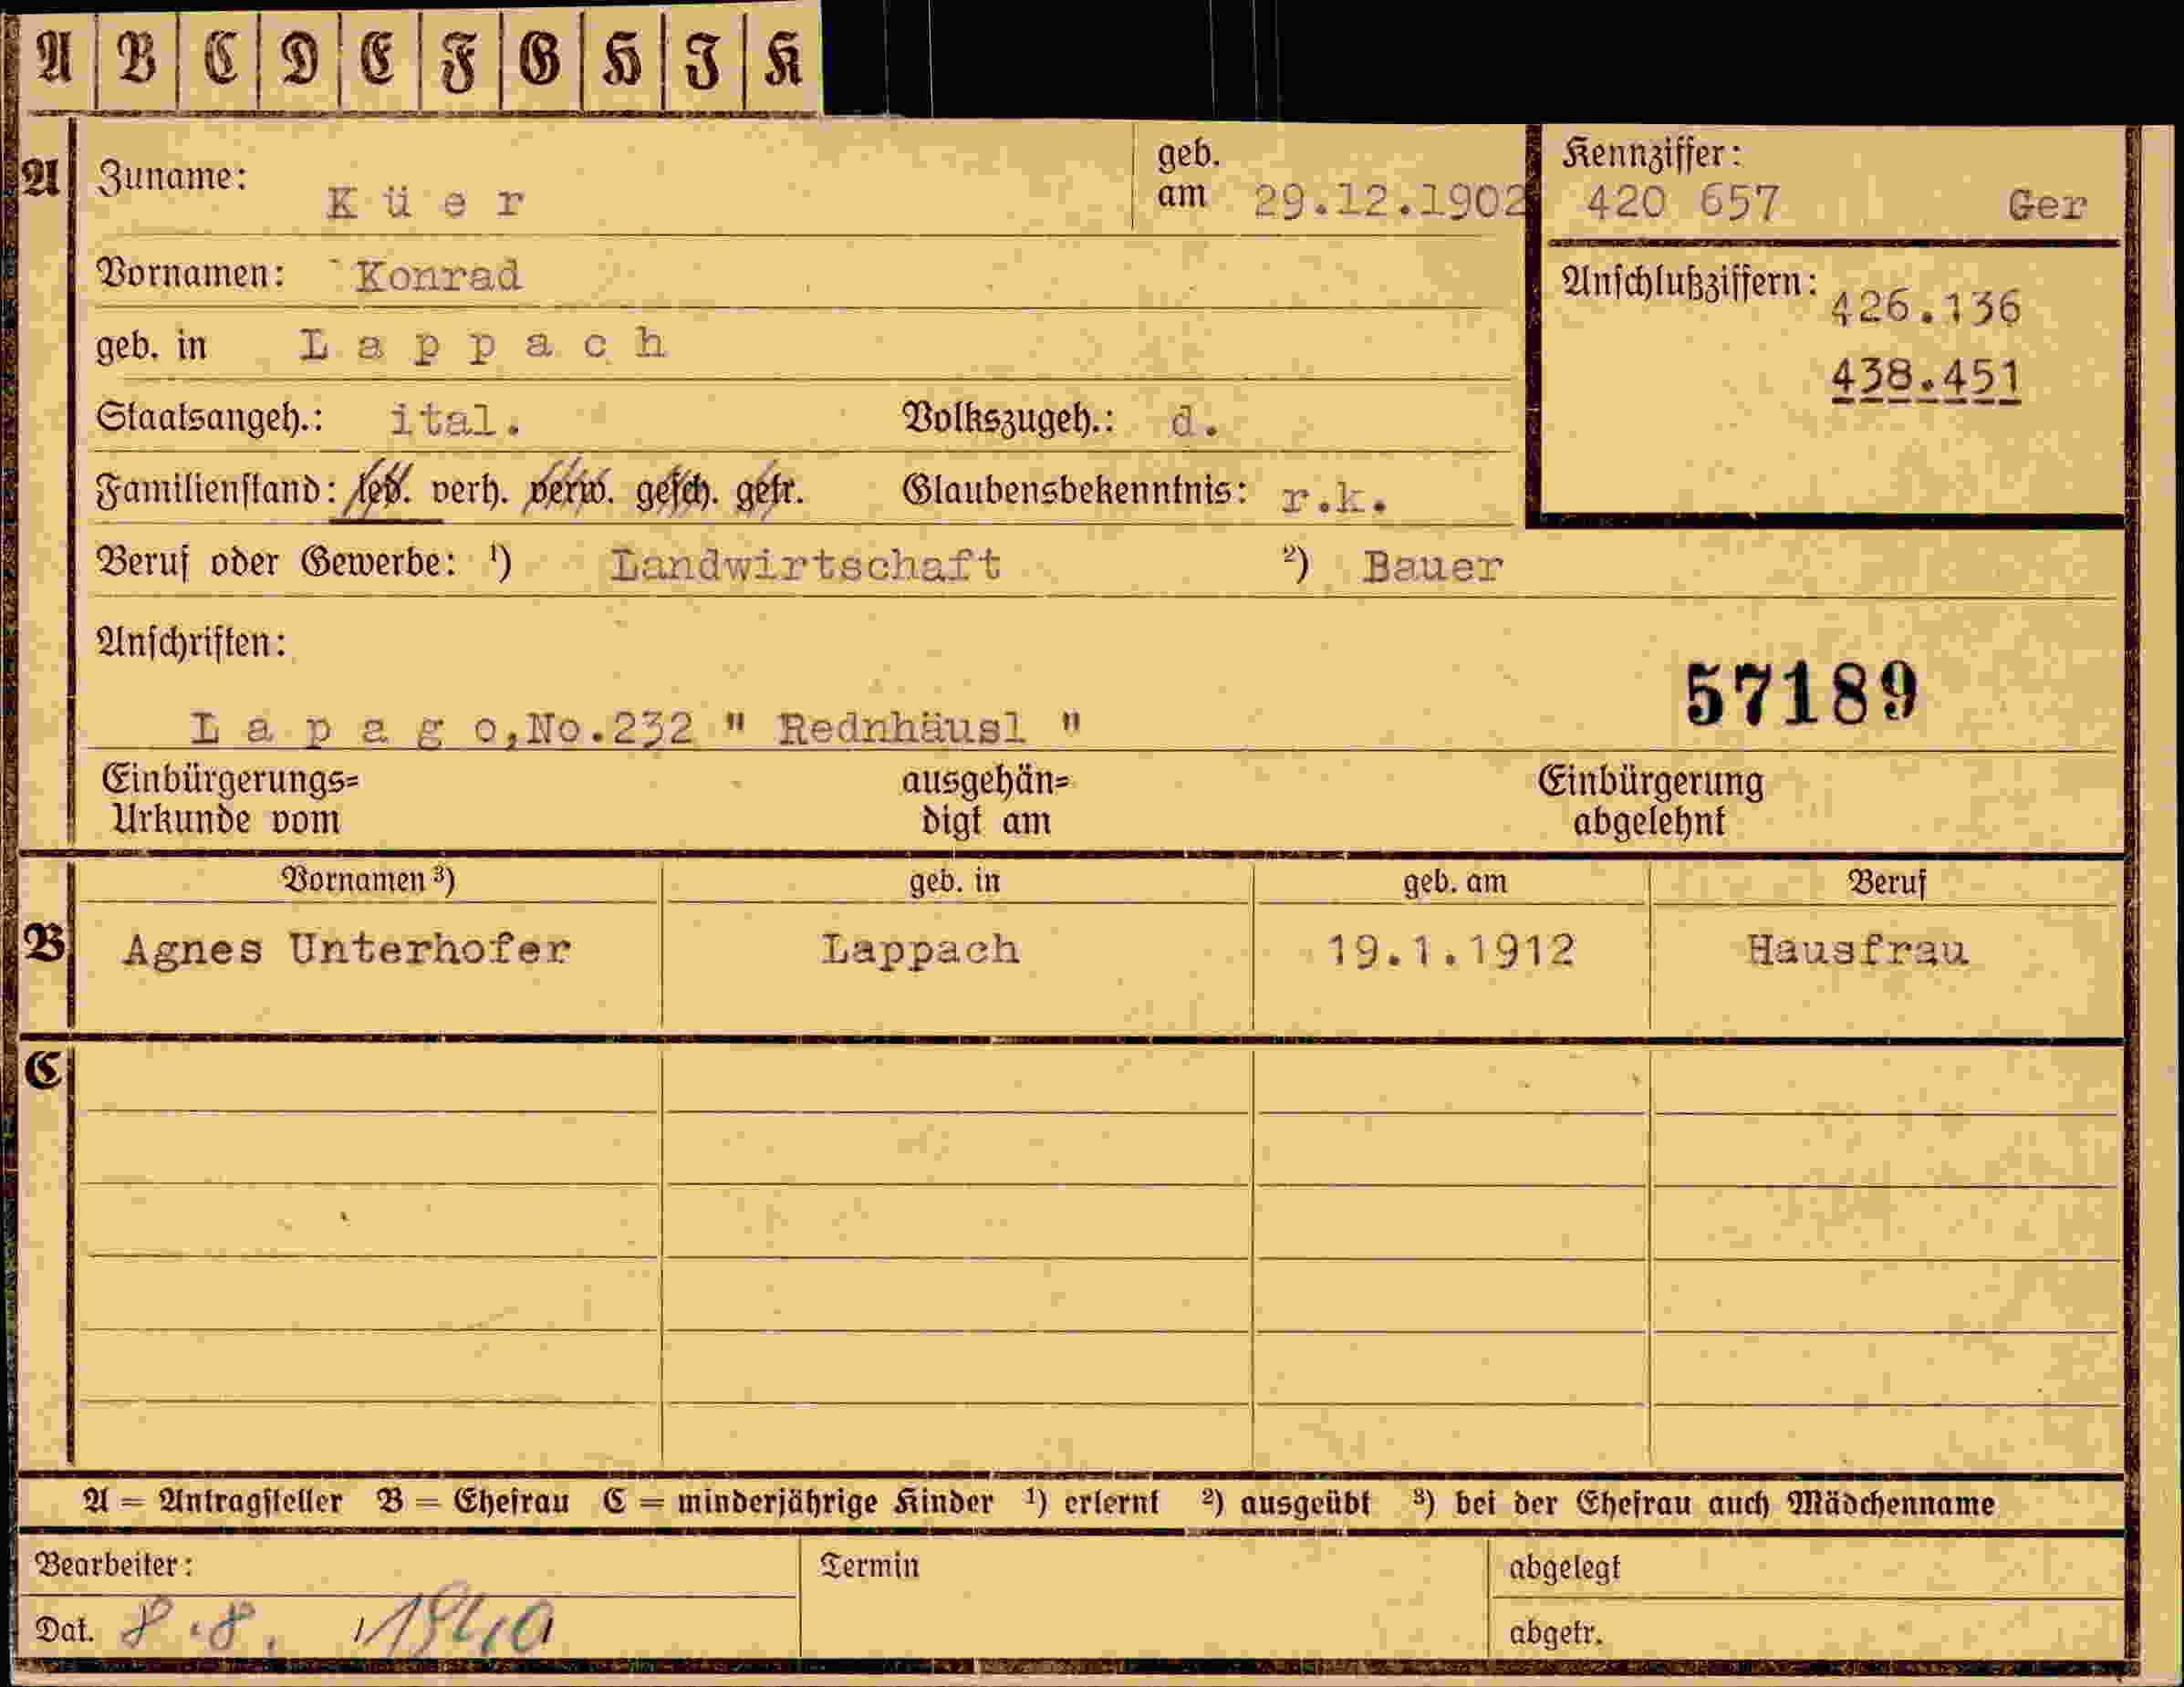 A B C D E F G H I K
A Zuname: Küer geb. am 29.12.1902 Kennziffer: 420 657 Ger
Vornamen: Konrad
Anschlußziffern: 426.136
geb. in Lappach
438.451
Staatsangeh.: ital. Volkszugeh.: d.
Familienstand: led. verh. verw. gesch. getr. Glaubensbekenntnis: r.k.
Beruf oder Gewerbe: 1) Landwirtschaft 2) Bauer
Anschriften:
57189
Lapago, No. 232 " Rednhäusl "
Einbürgerungs= ausgehän= Einbürgerung
Urkunde vom digt am abgelehnt
Vornamen 3) geb. in geb. am Beruf
B Agnes Unterhofer Lappach 19.1.1912 Hausfrau
C
A = Antragsteller B = Ehefrau C = minderjährige Kinder 1) erlernt 2) ausgeübt 3) bei der Ehefrau auch Mädchenname
Bearbeiter: Termin abgelegt
Dat. 8.8. 1940 abgetr.